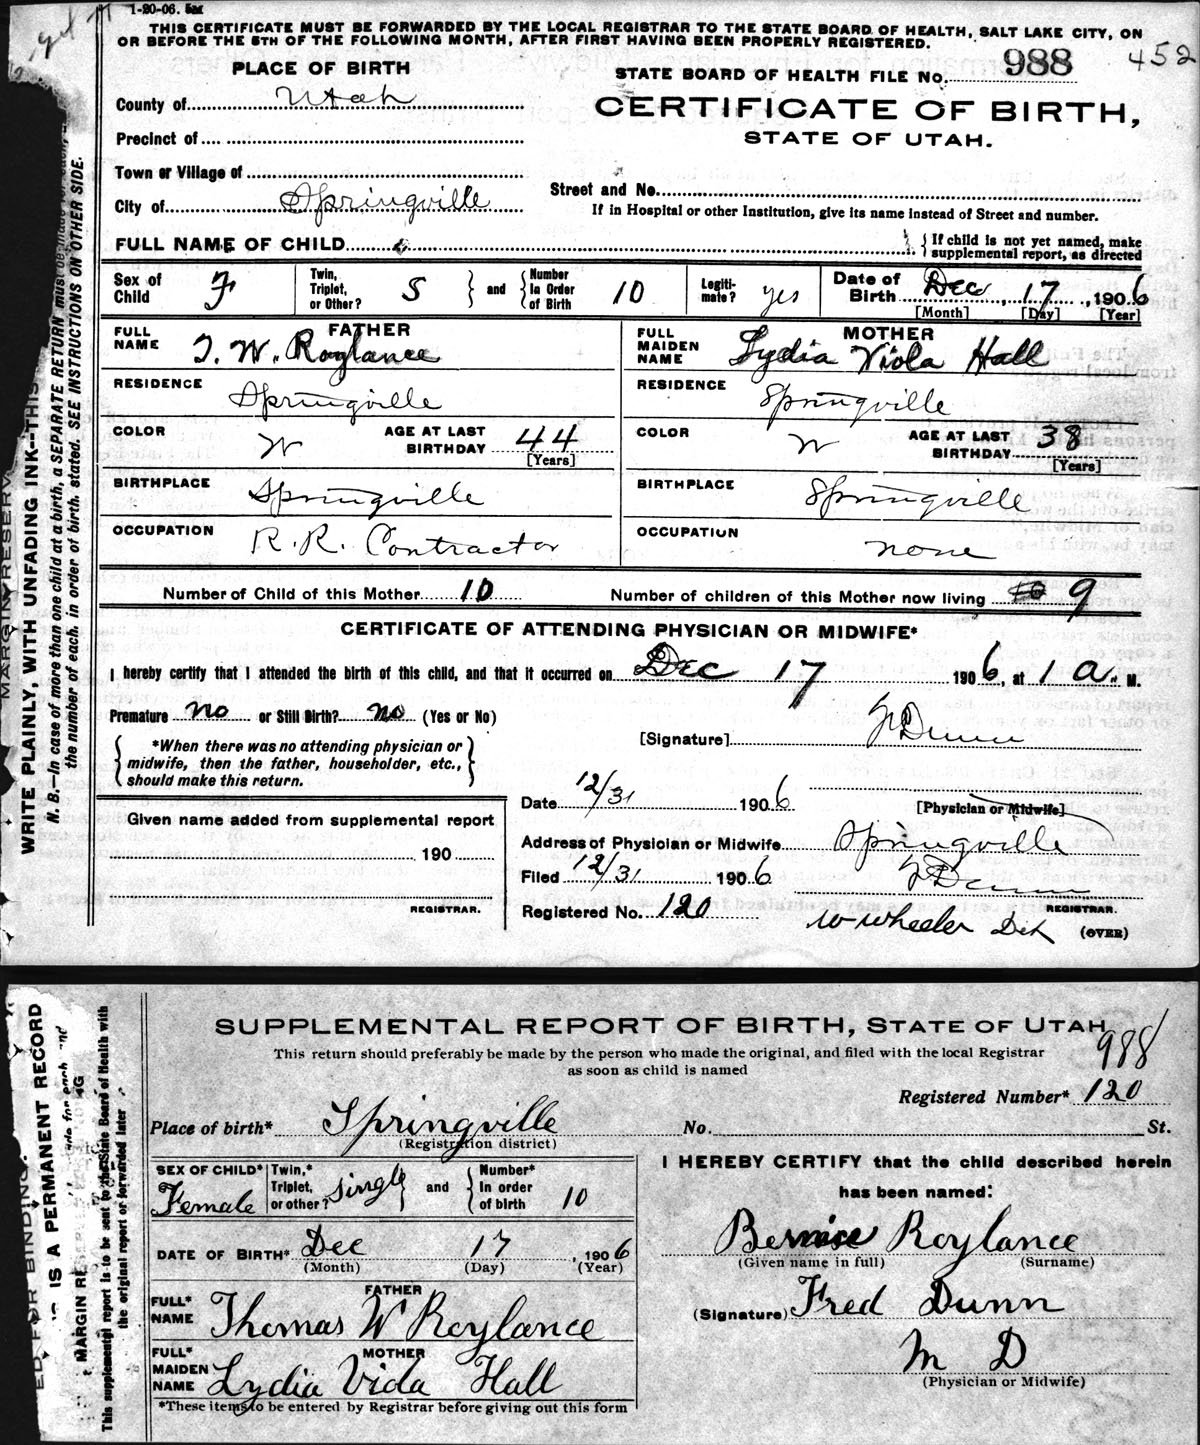 1-20-06.
THIS CERTIFICATE MUST BE FORWARDED BY THE LOCAL REGISTRAR TO THE STATE BOARD OF HEALTH, SALT LAKE CITY, ON
OR BEFORE THE 5TH OF THE FOLLOWING MONTH, AFTER FIRST HAVING BEEN PROPERLY REGISTERED.
452
PLACE OF BIRTH
STATE BOARD OF HEALTH FILE No. 988
County of Utah
CERTIFICATE OF BIRTH,
STATE OF UTAH.
Precinct of
Town or Village of
Street and No.
City of Springville
If in Hospital or other Institution, give its name instead of Street and number.
FULL NAME OF CHILD
If child is not yet named, make
supplemental report, as directed
Sex of Child F
Twin, Triplet, or Other? S and Number In Order of Birth 10
Legiti- mate? yes
Date of Birth Dec, 17, 1906
[Month] [Day] [Year]
FATHER
FULL NAME T. W. Roylance
RESIDENCE Springville
COLOR W AGE AT LAST BIRTHDAY 44
[Years]
BIRTHPLACE Springville
OCCUPATION R. R. Contractor
MOTHER
FULL MAIDEN NAME Lydia Viola Hall
RESIDENCE Springville
COLOR W AGE AT LAST BIRTHDAY 38
[Years]
BIRTHPLACE Springville
OCCUPATION none
Number of Child of this Mother 10 Number of children of this Mother now living 9
CERTIFICATE OF ATTENDING PHYSICIAN OR MIDWIFE*
I hereby certify that I attended the birth of this child, and that it occurred on Dec 17 1906, at 1 a. M.
Premature no or Still Birth? no (Yes or No)
[Signature] F Dunn
*When there was no attending physician or
midwife, then the father, householder, etc.,
should make this return.
Date 12/31 1906
[Physician or Midwife]
Given name added from supplemental report
190
REGISTRAR.
Address of Physician or Midwife Springville
Filed 12/31 1906 F Dunn
Registered No. 120
REGISTRAR.
W Wheeler Dek (OVER)
WRITE PLAINLY, WITH UNFADING INK--THIS
N. B.—In case of more than one child at a birth, a SEPARATE RETURN must be made for each, and
the number of each, in order of birth, stated. SEE INSTRUCTIONS ON OTHER SIDE.
MARGIN RESERV
SUPPLEMENTAL REPORT OF BIRTH, STATE OF UTAH
988
This return should preferably be made by the person who made the original, and filed with the local Registrar
as soon as child is named
Registered Number* 120
Place of birth* Springville No. St.
(Registration district)
SEX OF CHILD* Female
Twin,* Triplet, or other? Single and Number* In order of birth 10
DATE OF BIRTH* Dec 17, 1906
(Month) (Day) (Year)
FATHER
FULL* NAME Thomas W Roylance
MOTHER
FULL* MAIDEN NAME Lydia Vida Hall
*These items to be entered by Registrar before giving out this form
I HEREBY CERTIFY that the child described herein
has been named:
Bernice Roylance
(Given name in full) (Surname)
(Signature) Fred Dunn
M D
(Physician or Midwife)
ED FOR BINDING.
IS A PERMANENT RECORD
MARGIN RE
This supplemental report is to be sent to the State Board of Health with
the original report or forwarded later